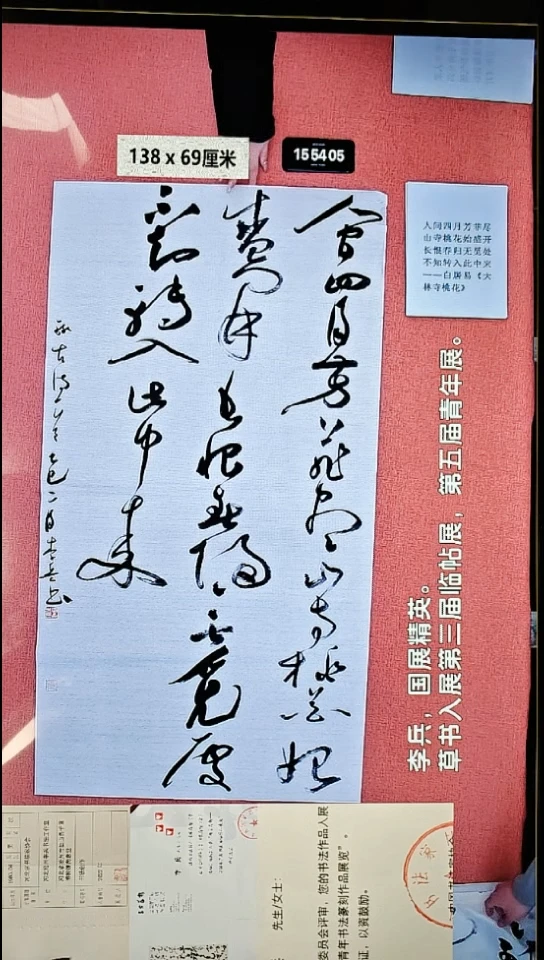 138 x 69厘米
155405
人间四月芳菲尽山寺桃花始
盛开长恨春归无觅处
不知转入此中来
录古诗一首乙巳二月李兵书
人间四月芳菲尽
山寺桃花始盛开
长恨春归无觅处
不知转入此中来
——白居易《大
林寺桃花》
李兵，国展精英。
草书入展第三届临帖展，第五届青年展。
先生/女士：
委员会评审，您的书法作品入展
青年书法篆刻作品展览”。
证，以资鼓励。